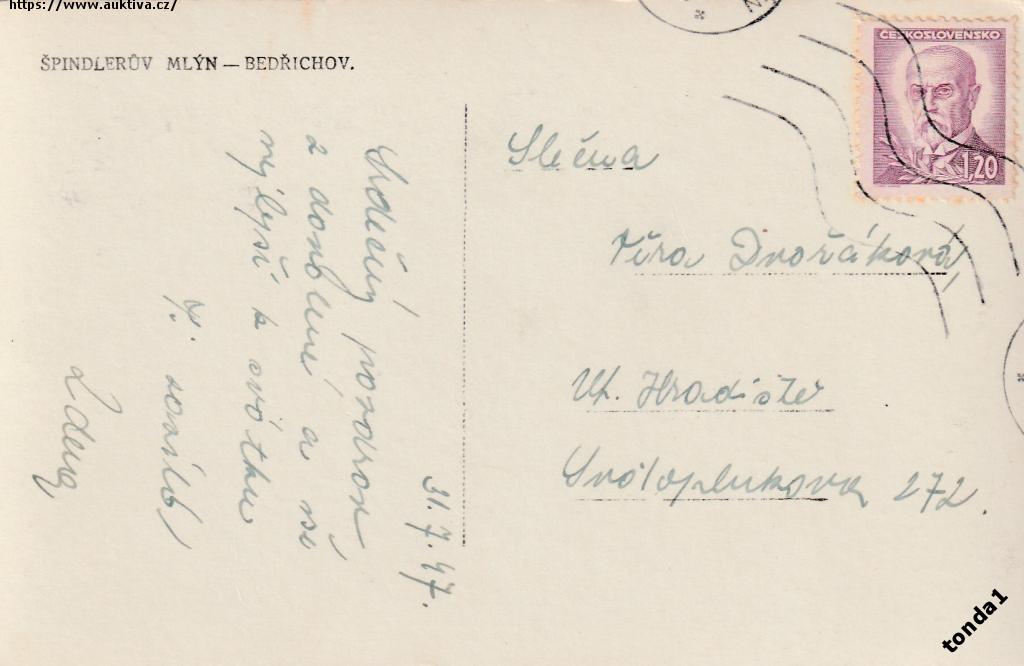 https://www.auktiva.cz/
ŠPINDLERŮV MLÝN — BEDŘICHOV.
ČESKOSLOVENSKO
1,20
Srdečný pozdrav
z dovolené a
k svátku
31.7.47.
Slečna
Věra Dvořáková
Uh. Hradiště
Svatoplukova 272.
tonda1